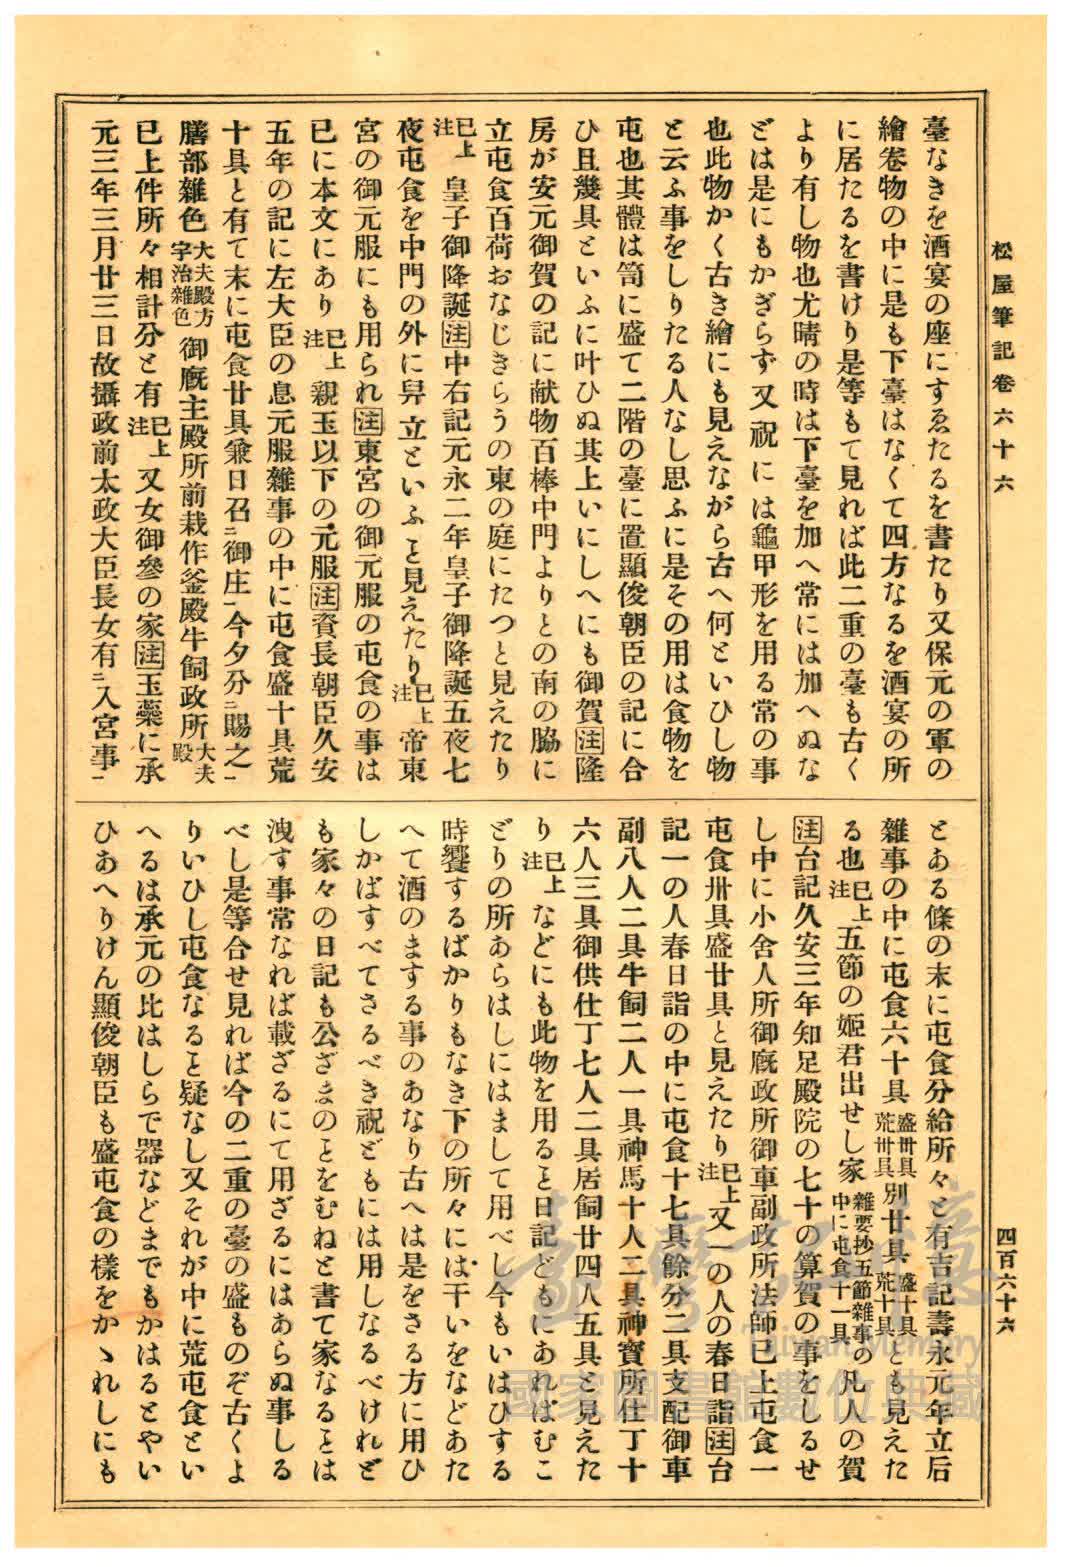 松屋筆記卷六十六
四百六十六
臺なきを酒宴の座にすゑたるを書たり又保元の軍の
繪卷物の中に是も下臺はなくて四方なるを酒宴の所
に居たるを書けり是等もて見れば此二重の臺も古く
より有し物也尤晴の時は下臺を加へ常には加へぬな
どは是にもかぎらず又祝には龜甲形を用る常の事
也此物かく古き繪にも見えながら古へ何といひし物
と云ふ事をしりたる人なし思ふに是その用は食物を
屯也其體は笥に盛て二階の臺に置顯俊朝臣の記に合
ひ且幾具といふに叶ひぬ其上いにしへにも御賀注隆
房が安元御賀の記に献物百棒中門よりとの南の脇に
立屯食百荷おなじきらうの東の庭にたつと見えたり
已上注皇子御降誕注中右記元永二年皇子御降誕五夜七
夜屯食を中門の外に舁立といふと見えたり已上注帝東
宮の御元服にも用られ注東宮の御元服の屯食の事は
已に本文にあり已上注親王以下の元服注資長朝臣久安
五年の記に左大臣の息元服雜事の中に屯食盛十具荒
十具と有て末に屯食廿具兼日召ニ御庄一今夕分ニ賜之一
膳部雜色大夫殿方宇治雜色御厩主殿所前栽作釜殿牛飼政所大夫殿
已上件所々相計分と有已上注又女御參の家注玉藥に承
元三年三月廿三日故攝政前太政大臣長女有ニ入宮事一
とある條の末に屯食分給所々と有吉記壽永元年立后
雜事の中に屯食六十具盛卅具荒卅具別廿具盛十具荒十具とも見えた
る也已上注五節の姬君出せし家雜要抄五節雜事の中に屯食十一具凡人の賀
注台記久安三年知足殿院の七十の算賀の事をしるせ
し中に小舍人所御厩政所御車副政所法師已上屯食一
屯食卅具盛廿具と見えたり已上注又一の人の春日詣注台
記一の人春日詣の中に屯食十七具餘分二具支配御車
副八人二具牛飼二人一具神馬十人二具神寳所仕丁十
六人三具御供仕丁七人二具居飼廿四人五具と見えた
り已上注などにも此物を用ると日記どもにあればむこ
どりの所あらはしにはまして用べし今もいはひする
時饗するばかりもなき下の所々には干いをなどあた
へて酒のまする事のあなり古へは是をさる方に用ひ
しかばすべてさるべき祝どもには用しなるべけれど
も家々の日記も公ざまのことをむねと書て家なることは
洩す事常なれば載ざるにて用ざるにはあらぬ事しる
べし是等合せ見れば今の二重の臺の盛ものぞ古くよ
りいひし屯食なると疑なし又それが中に荒屯食とい
へるは承元の比はしらで器などまでもかはるとやい
ひあへりけん顯俊朝臣も盛屯食の樣をかゝれしにも
臺灣記憶
Taiwan Memory
國家圖書館數位典藏